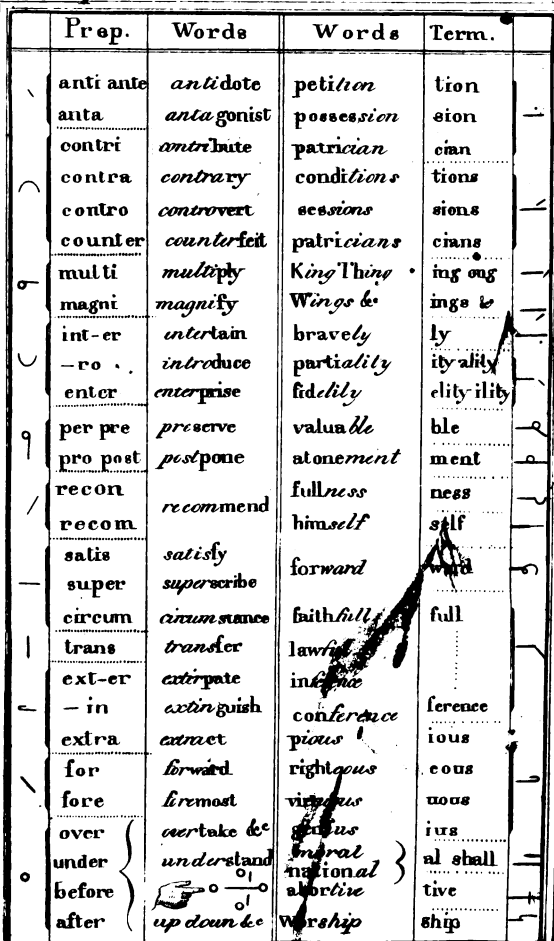 Prep. Words Words Term.
anti ante antidote petition tion
anta antagonist possession sion
contri contribute patrician cian
contra contrary conditions tions
contro controvert sessions sions
counter counterfeit patricians cians
multi multiply King Thing ing ong
magni magnify Wings &c ings &c
int-er intertain bravely ly
-ro introduce partiality ity ality
enter enterprise fidelily elity ility
per pre preserve valuable ble
pro post postpone atonement ment
recon fullness ness
recommend
recom himself self
satis satisfy
forward ward
super superscribe
circum circumstance faithfull full
trans transfer lawful
ext-er exterpate inference
-in extinguish conference ference
extra extract pious ious
for forward righteous eous
fore foremost virtuous uous
over overtake &c genius ius
under understand moral al shall
national
before abortive tive
after up down &c Worship ship